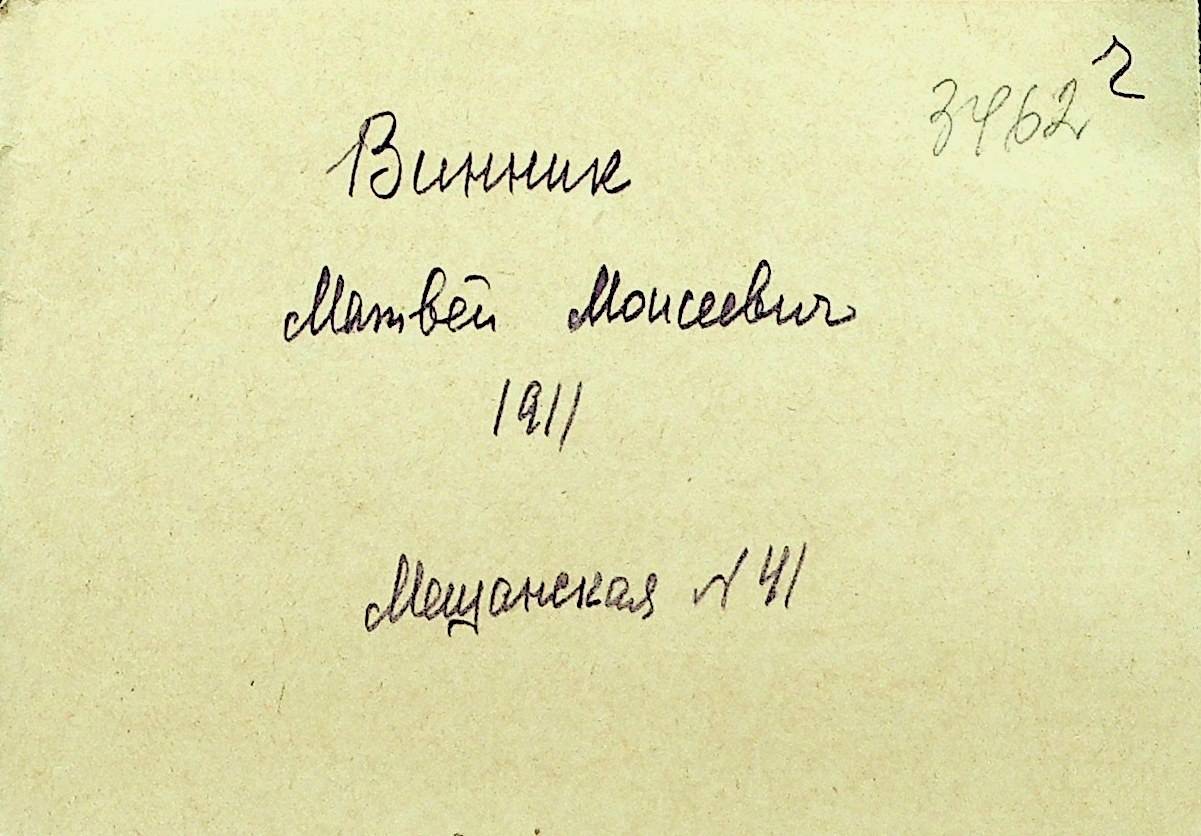 3462 г
Винник
Матвей Моисеевич
1911
Мещанская №41